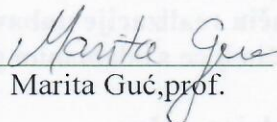 Marita Guć
Marita Guć,prof.